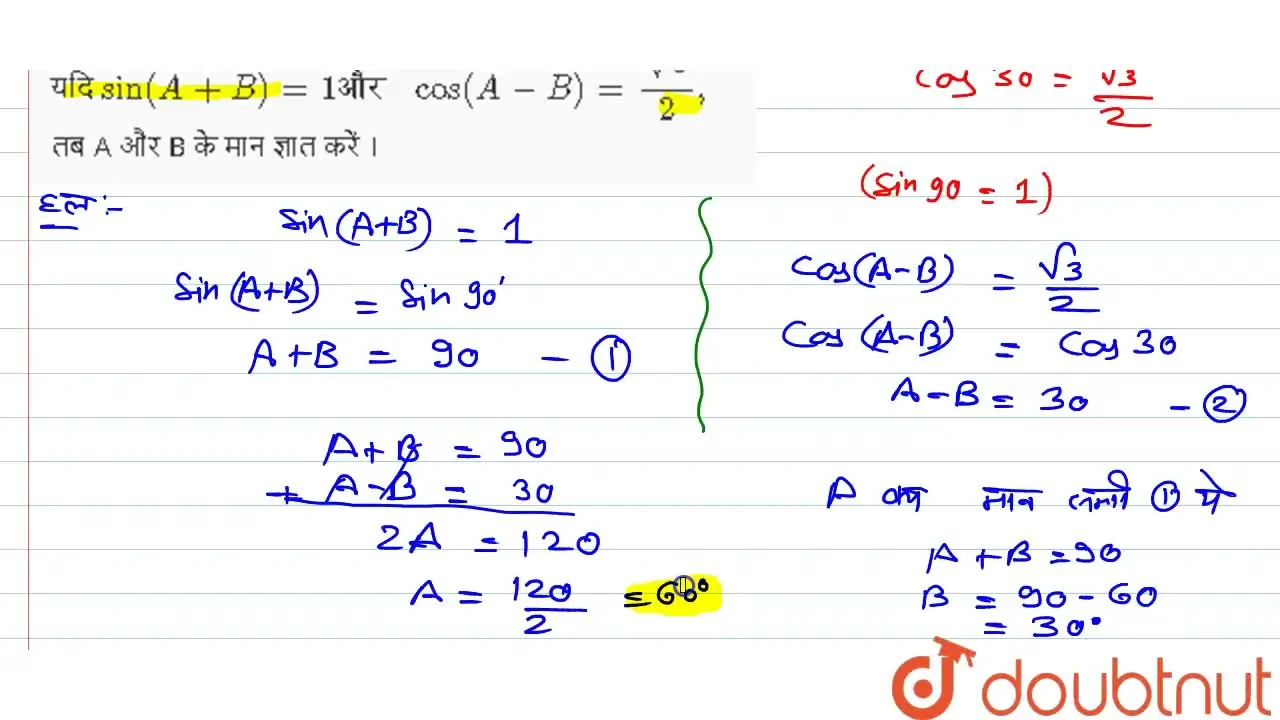 यदि sin(A + B) = 1और cos(A − B) = √3/2,
तब A और B के मान ज्ञात करें ।
हल :-
sin(A+B) = 1
sin(A+B) = sin 90°
A+B = 90 - ①
A+B = 90
+ A-B = 30
2A = 120
A = 120/2 = 60°
cos 30 = √3/2
(sin 90 = 1)
Cos(A-B) = √3/2
Cos (A-B) = Cos 30
A-B = 30 - ②
A का मान समी ① में
A + B = 90
B = 90 - 60
= 30°
doubtnut